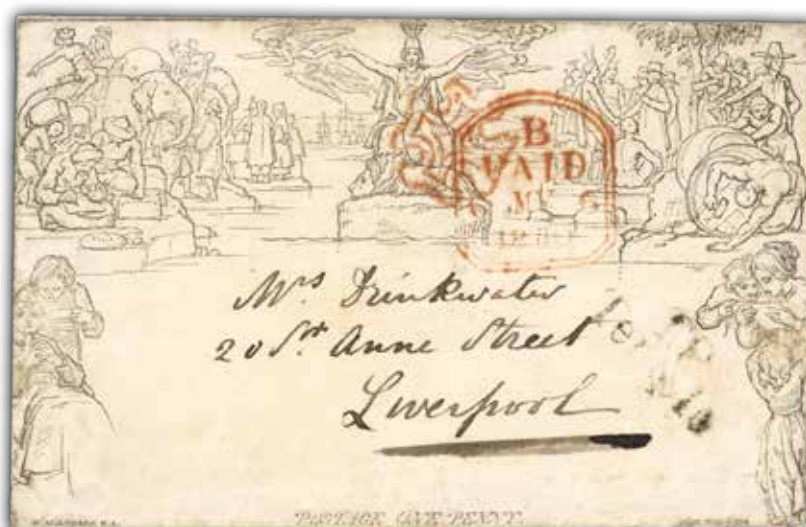 B
PAID
Mrs Drinkwater
20 St Anne Street
Liverpool
POSTAGE ONE PENNY.